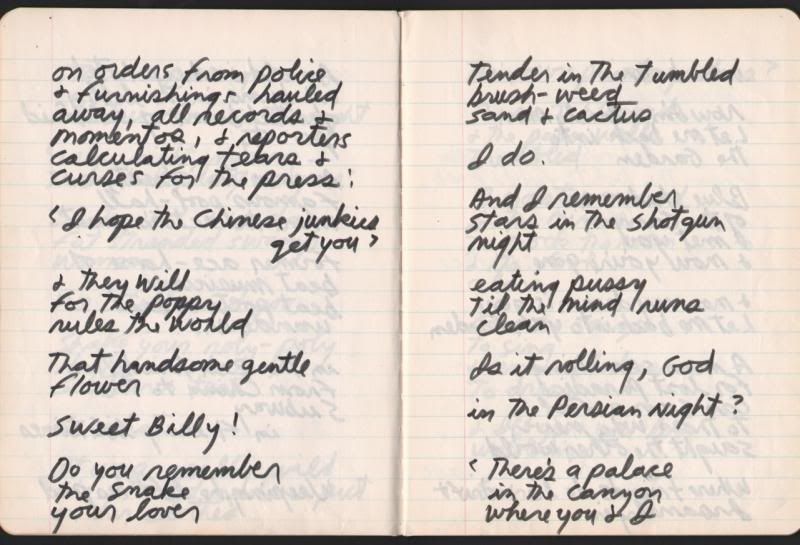 on orders from police
& furnishings hauled
away, all records &
momentos, & reporters
calculating tears &
curses for the press:
‹ I hope the Chinese junkies
get you ›
& they will
for the poppy
rules the world
That handsome gentle
flower
Sweet Billy!
Do you remember
the snake
your lover
Tender in The Tumbled
brush-weed
sand & cactus
I do.
And I remember
Stars in The shotgun
night
eating pussy
Til the mind runs
clean
Is it rolling, God
in The Persian Night?
‹ There's a palace
in the canyon
where you & I